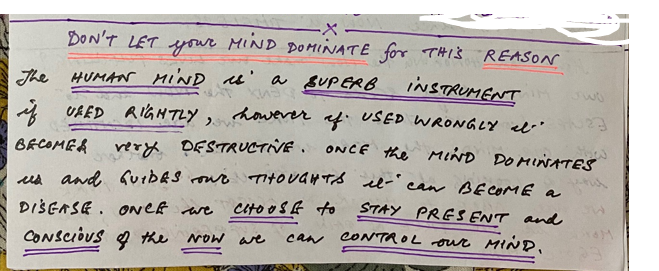 X
DON'T LET your MIND DOMINATE for THIS REASON
The HUMAN MIND is a SUPERB INSTRUMENT
if USED RIGHTLY, however if USED WRONGLY it
BECOMES very DESTRUCTIVE. ONCE the MIND DOMINATES
us and GUIDES our THOUGHTS it can BECOME a
DISEASE. ONCE we CHOOSE to STAY PRESENT and
CONSCIOUS of the NOW we can CONTROL our MIND.